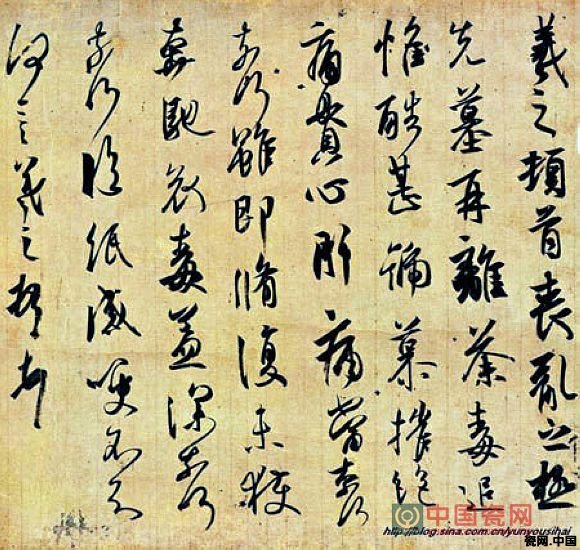 羲之頓首喪亂之極
先墓再離荼毒追
惟酷甚號慕摧絕
痛貫心肝痛當奈何
奈何雖即脩復未獲
奔馳哀毒益深奈何
奈何臨紙感哽不知
何言羲之頓首頓首
中国瓷网
http://blog.sina.com.cn/yunyousihai
瓷网.中国